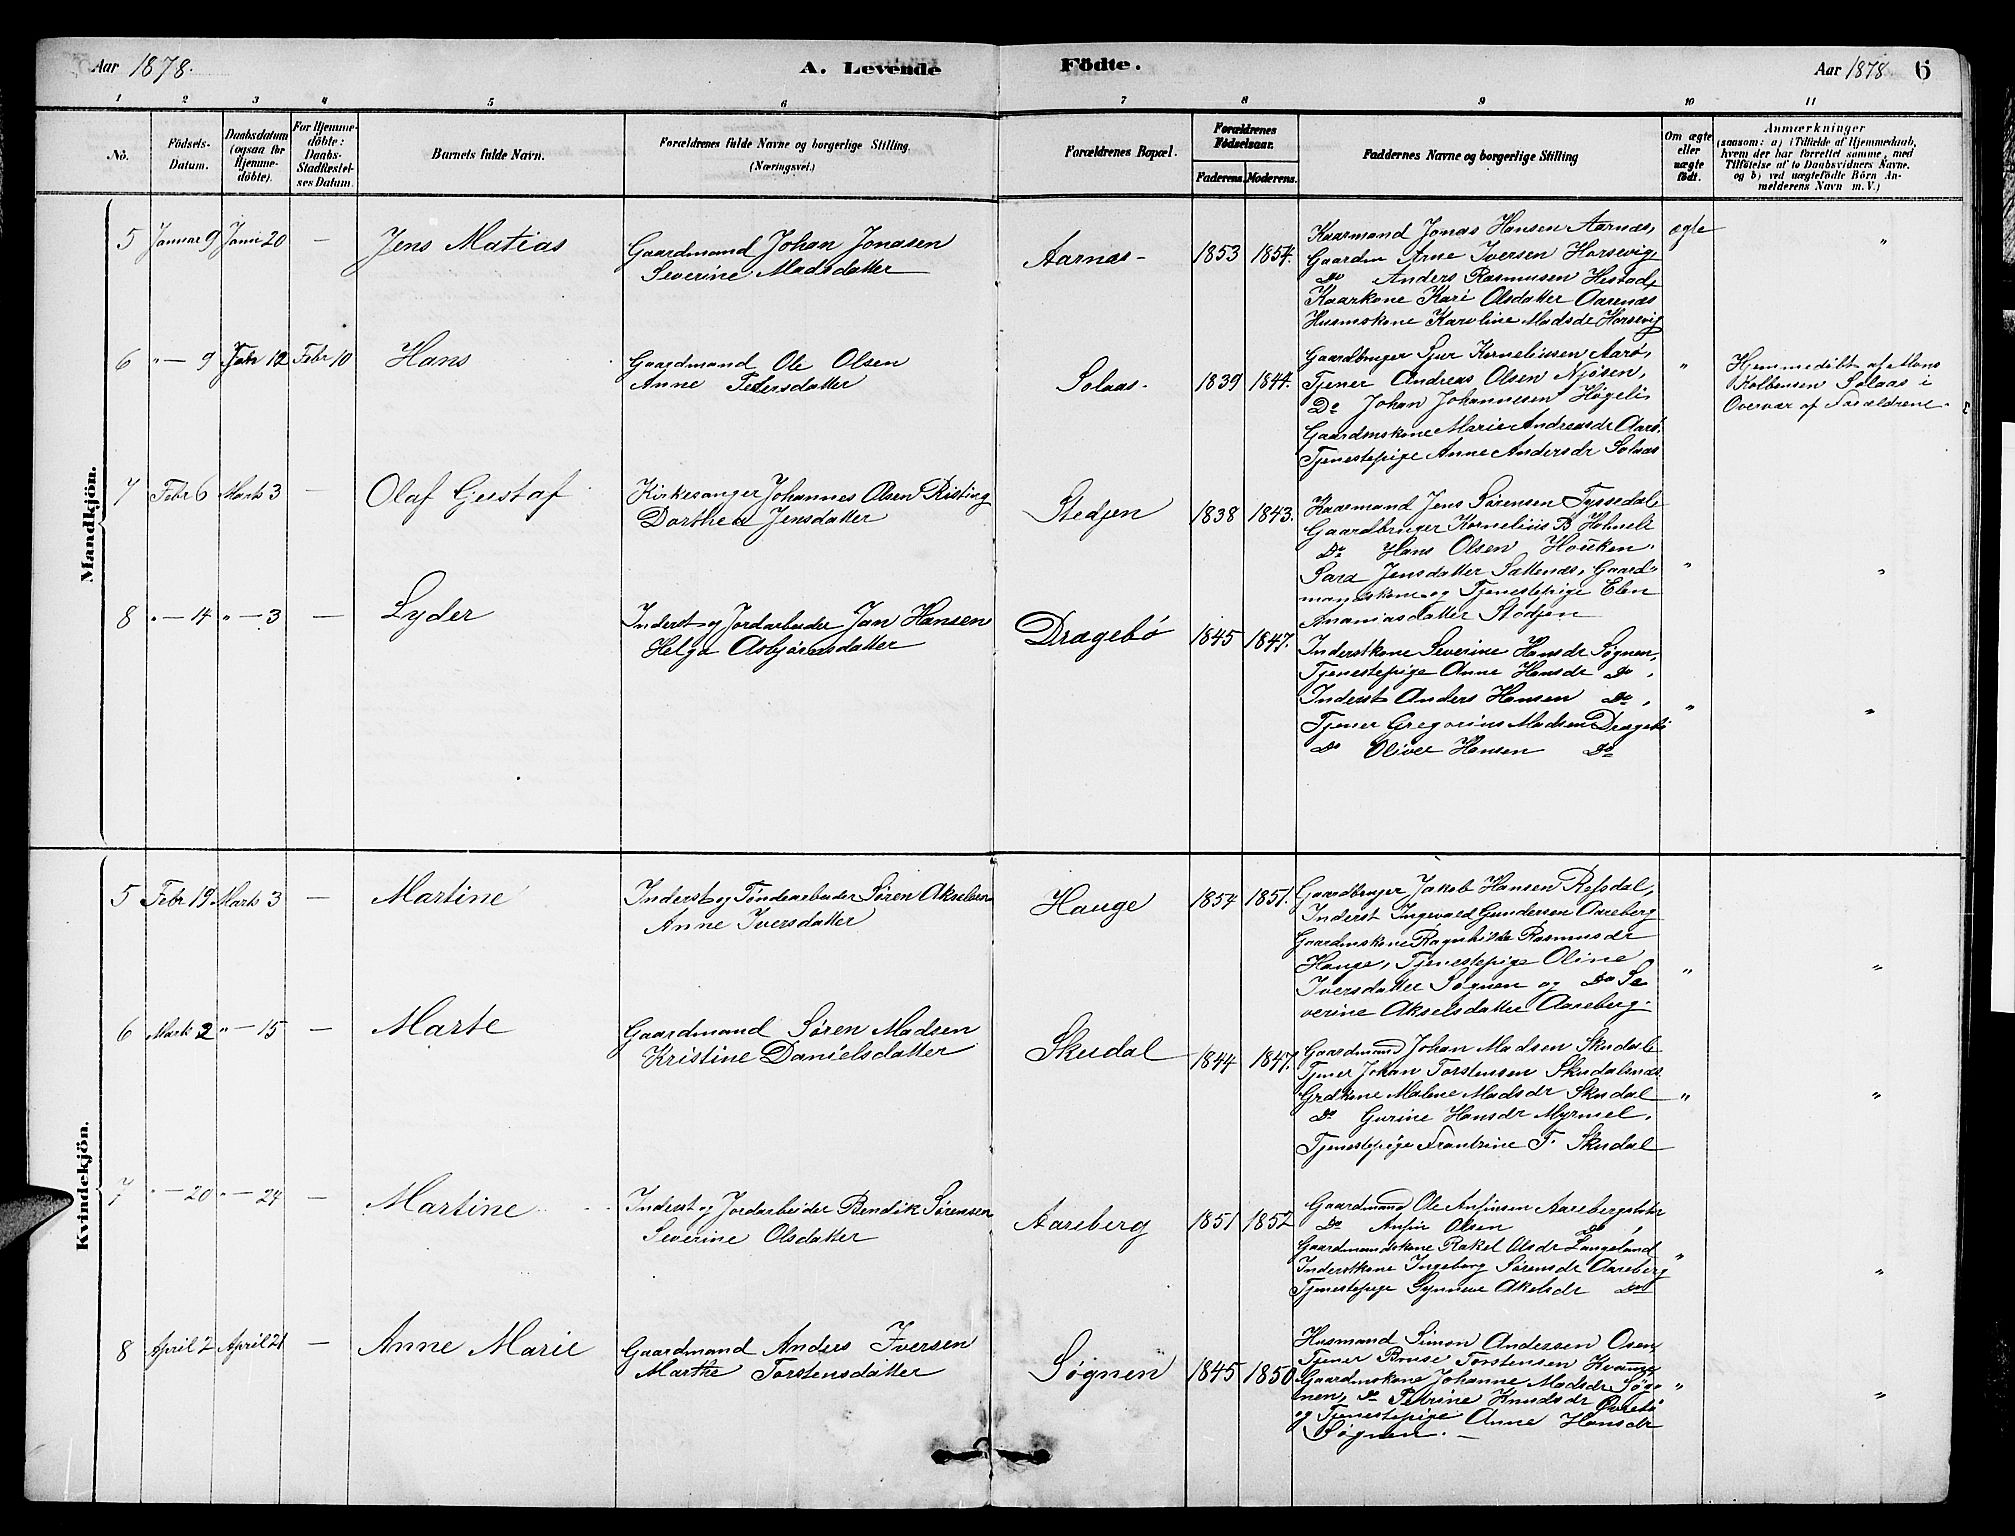 Aar 1878.
A. Levende Födte.
Aar 1878 6
1 2 3 4 5 6 7 8 9 10 11
No.
Födsels-
Datum.
Daabsdatum
(ogsaa for
Hjemme-
döbte).
For Hjemme-
döbte:
Daabs-
Stadfæstel-
ses Datum.
Barnets fulde Navn.
Forældrenes fulde Navne og borgerlige Stilling.
(Næringsvei.)
Forældrenes Bopæl.
Forældrenes
Födselsaar.
Faderens. Moderens.
Faddernes Navne og borgerlige Stilling
Om ægte
eller
uægte
födt.
Anmærkninger
(saasom: a) i Tilfælde af Hjemmedaab,
hvem der har forrettet samme, med
Tilföielse af to Daabsvidners Navne.
og b) ved uægtefödte Börn An-
melderens Navn m. V.)
Mandkjön.
5 Januar 9 Janu 20 — Jens Matias
Gaardmand Johan Jonasen
Severine Madsdatter
Aarnæs 1853 1854.
Kaarmand Jonas Hansen Aarnæs,
Gaardm Arne Iversen Horsevig,
Do Anders Rasmusen Hestad,
Kaarkone Kari Olsdatter Aarenæs
Husmskone Karoline Madsdr Horsevig
ægte "
6 " — 9 Febr 12 Febr 10 Hans
Gaardmand Ole Olsen
Anne Petersdatter
Solaas 1839 1844.
Gaardbruger Sjur Korneliusen Aarø,
Tjener Andreas Olsen Njøsen,
Do Johan Johannesen Høgeli
Gaardmskone Marie Andreasdr Aarø
Tjenestepige Anne Andersdr Solaas
"
Hjemmedöbt af Mons
Kolbensen Solaas i
Overvær af Forældrene
7 Febr 6 Marts 3 — Olaf Gustaf
Kirkesanger Johannes Olsen Risting
Dorthea Jensdatter
Stedjen 1838 1843.
Kaarmand Jens Sørensen Tyssedal
Gaardbruger Kornelius B Holmeli
Do Hans Olsen Houken
Sara Jensdatter Sættenæs, Gaard-
mandskone og Tjenestepige Elen
Ananiasdatter Stödjen
" "
8 " — 14 " — 3 — Lyder
Inderst og Jordarbeider Jan Hansen
Helga Asbjørnsdatter
Dragebø 1845 1847.
Inderstkone Severine Hansdr Søgnen,
Tjenestepige Anne Hansdr Do,
Inderst Anders Hansen Do,
Tjener Gregorius Madsen Dragebø
Do Oliver Hansen Do
" "
Kvindekjön.
5 Febr 19 Marts 3 — Martine
Inderst og Tøndearbeider Søren Akselsen
Anne Iversdatter
Hauge 1854 1851.
Gaardbruger Jakob Hansen Refsdal,
Inderst Ingevald Gundersen Aareberg
Gaardmskone Ragnhilda Rasmusdr
Hauge, Tjenestepige Oline
Iversdatter Søgnen og Do Se
verine Akselsdatter Aareberg.
" "
6 Marts 2 " — 15 — Marte
Gaardmand Søren Madsen
Kristine Danielsdatter
Skudal 1844 1847.
Gaardmand Johan Madsen Skudal
Tjener Johan Torstensen Skudalsnæs
Grdkone Malene Madsdr Skudal
Do Gurine Hansdr Myrmel,
Tjenestepige Frantzine T. Skudal
" "
7 " — 20 " — 24 — Martine
Inderst og Jordarbeider Bendik Sørensen
Severine Olsdatter
Aareberg 1851 1852
Gaardmand Ole Anfinsen Aarebergslien
Do Anfin Olsen Do,
Gaardmandskone Rakel Olsdr Langeland
Inderstkone Ingeborg Sørensdr Aareberg
Tjenestepige Synneve Akselsdr Do
" "
8 April 2 April 21 — Anne Marie
Gaardmand Anders Iversen
Marthe Torstensdatter
Søgnen 1845 1850
Husmand Simon Andersen Osen
Tjener Bruse Torstensen Kvamme
Gaardmskone Johanne Madsdr Søg-
nen, Do Petrine Knudsdr Øvrebø
og Tjenestepige Anne Hansdr
Søgnen.
" "